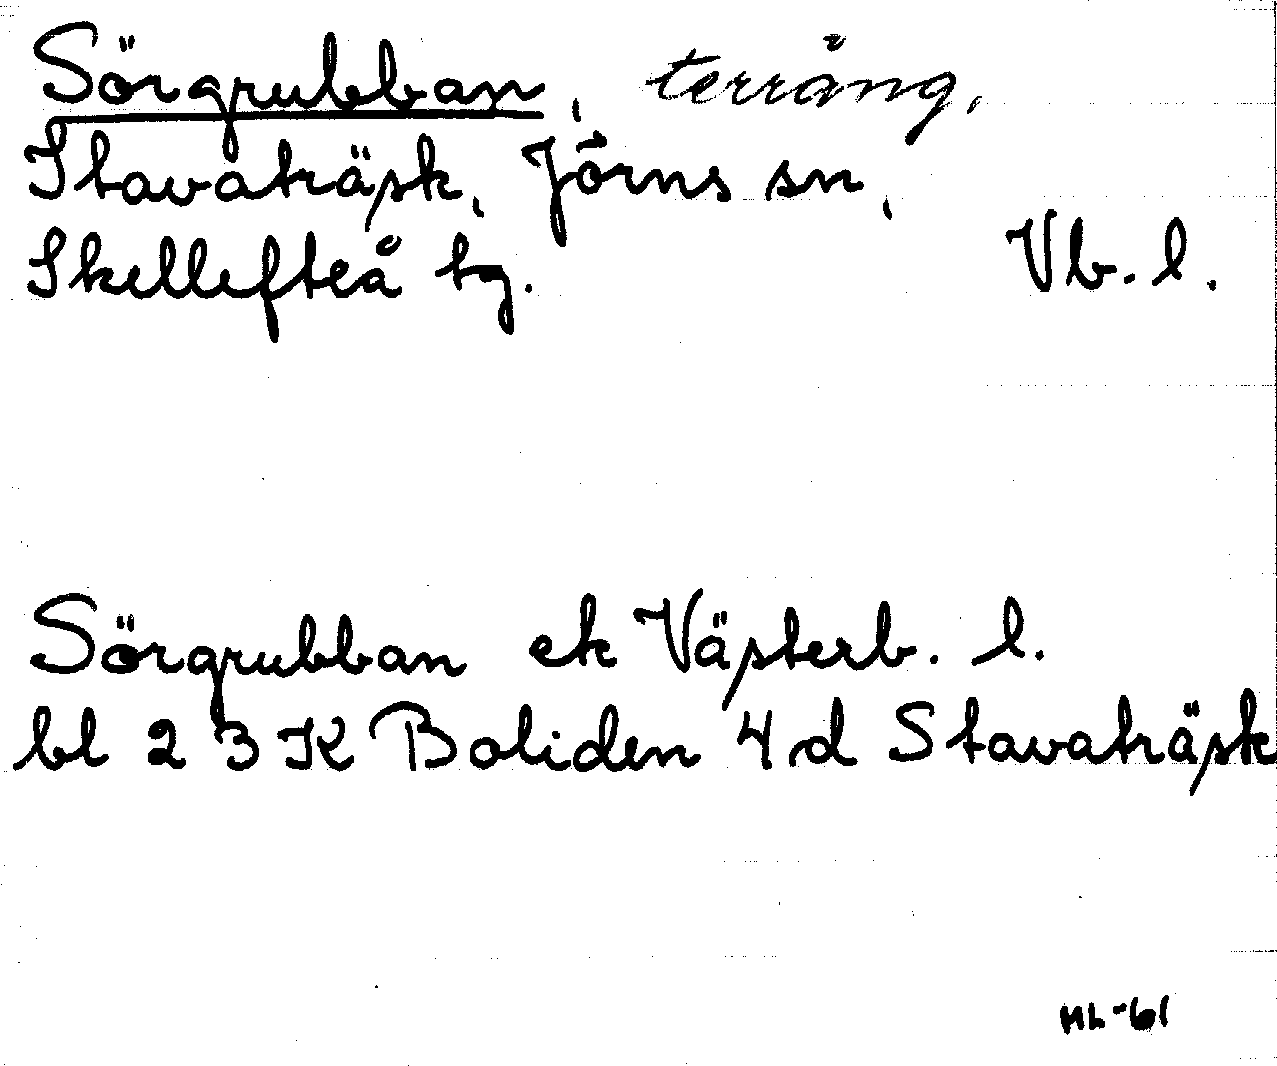 Sörgrubban, terräng,
Stavaträsk, Jörns sn,
Skellefteå tg. Vb. l.
Sörgrubban ek Västerb. l.
bl 23 K Boliden 4 d Stavaträsk
ML-61